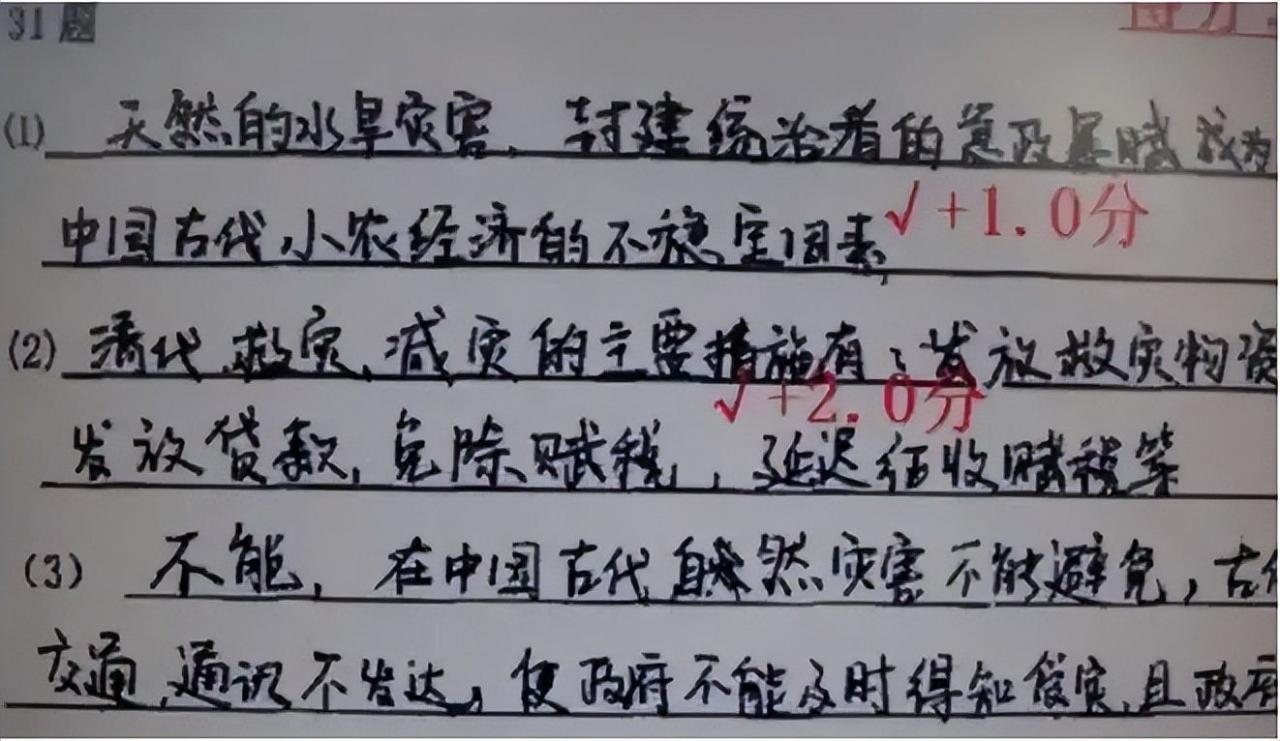 31题
得分
(1) 天然的水旱灾害、封建统治者的急政暴赋成为
中国古代小农经济的不稳定因素,
√+1.0分
(2) 清代救灾、减灾的主要措施有:发放救灾物资
√+2.0分
发放贷款,免除赋税,,延迟征收赋税等
(3) 不能,在中国古代自然灾害不能避免,古代
交通、通讯不发达,使政府不能及时得知灾,且政府